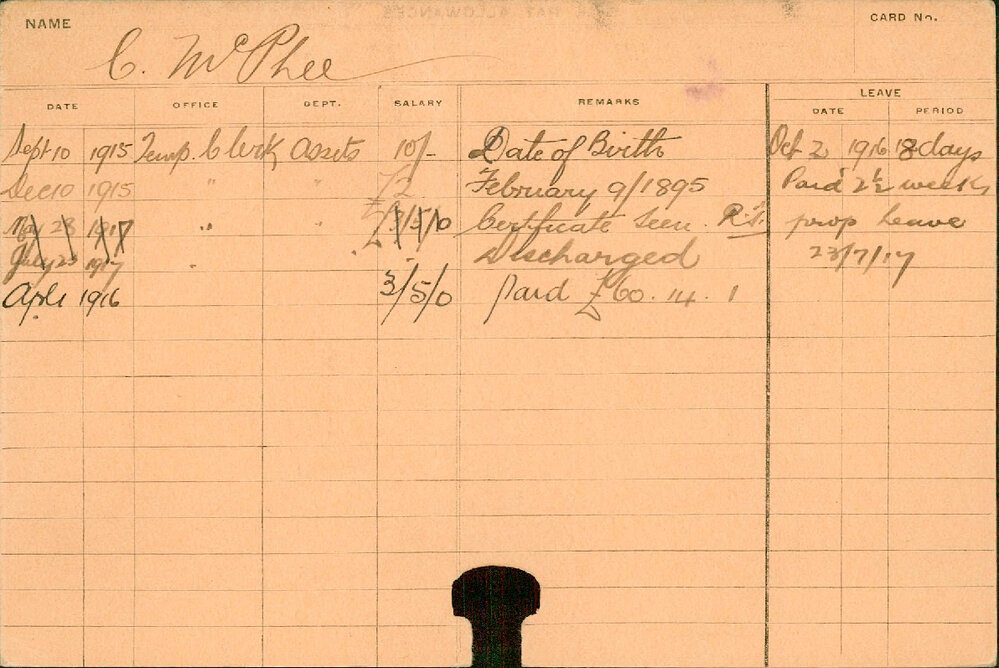 NAME
CARD No.
C. McPhee
DATE OFFICE DEPT. SALARY REMARKS LEAVE
DATE PERIOD
Sept 10 1915 Temp. Clerk Assets 10/- Date of Birth Oct 2 1916 18 days
Dec 10 1915 " " £2 February 9/1895 Paid 2½ weeks
28 1917 " £3/5/0 Certificate Seen. prop leave
July 23 1917 " Discharged 23/7/17
Apl 1 1916 3/5/0 Paid £60. 14. 1